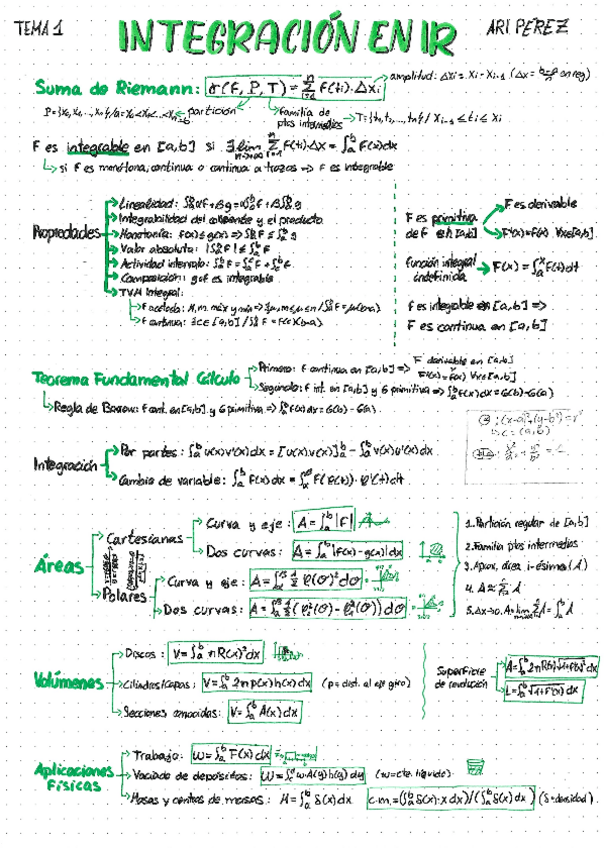 TEMA 1
INTEGRACIÓN EN IR
ARI PEREZ
Suma de Riemann: σ(F, P, T) = Σⁿᵢ₌₁ F(ti)·Δxi
amplitud: Δxi = xi - xi-1
partición
familia de ptos intermedios
→ T={t1, t2, ..., tn} / xi-1 ≤ ti ≤ xi
F es integrable en [a,b] si ∃ lim Σ F(ti)·Δx = ∫ₐᵇ F(x)dx
↳ si F es monótona, continua o continua a trozos => F es integrable
Propiedades
Linealidad: ∫αF+βg = α∫F+β∫g
Integrabilidad del cociente y el producto
Monotonía: F(x) ≤ g(x) => ∫F ≤ ∫g
Valor absoluto: |∫F| ≤ ∫F
Composición: g∘F es integrable
TVM Integral:
F es primitiva de F en [a,b]
F es derivable
F'(x)=F(x) ∀x∈[a,b]
función integral indefinida → F(x) = ∫ₐˣ F(t)dt
F es integrable en [a,b] =>
F es continua en [a,b]
Teorema Fundamental Cálculo
Primero: F continua en [a,b] => F derivable en [a,b]
Segundo: F int. en [a,b] y G primitiva => ∫ₐᵇ F(x)dx = G(b)-G(a)
↳ Regla de Barrow: F cont. en [a,b] y G primitiva => ∫ₐᵇ F(x)dx = G(b)-G(a)
Integración
Por partes: ∫ₐᵇ u(x)v'(x)dx = [u(x)·v(x)]ₐᵇ - ∫ₐᵇ v(x)u'(x)dx
Cambio de variable: ∫ₐᵇ F(x)dx = ∫ F(φ(t))·φ'(t)dt
Áreas
Cartesianas
Curva y eje: A = ∫ₐᵇ |F|
Dos curvas: A = ∫ₐᵇ |F(x)-g(x)|dx
Polares
Curva y eje: A = ∫ ½ φ(θ)²dθ
Dos curvas: A = ∫ ½ (φ₂²(θ) - φ₁²(θ))dθ
1. Partición regular de [a,b]
2. Familia ptos intermedios
3. Aprox. área i-ésima (A)
Volúmenes
Discos: V = ∫ₐᵇ πR(x)²dx
Cilindros/capas: V = ∫ₐᵇ 2πp(x)h(x)dx (p = dist. al eje giro)
Secciones conocidas: V = ∫ₐᵇ A(x)dx
Superficie de revolución
Aplicaciones Físicas
Trabajo: W = ∫ₐᵇ F(x)dx
Vaciado de depósitos: W = ∫ w·A(y)h(y)dy (w=cte. líquido)
Masas y centros de masas: M = ∫ₐᵇ δ(x)dx c.m. = (∫ₐᵇ δ(x)·x dx)/(∫ₐᵇ δ(x)dx) (δ=densidad)